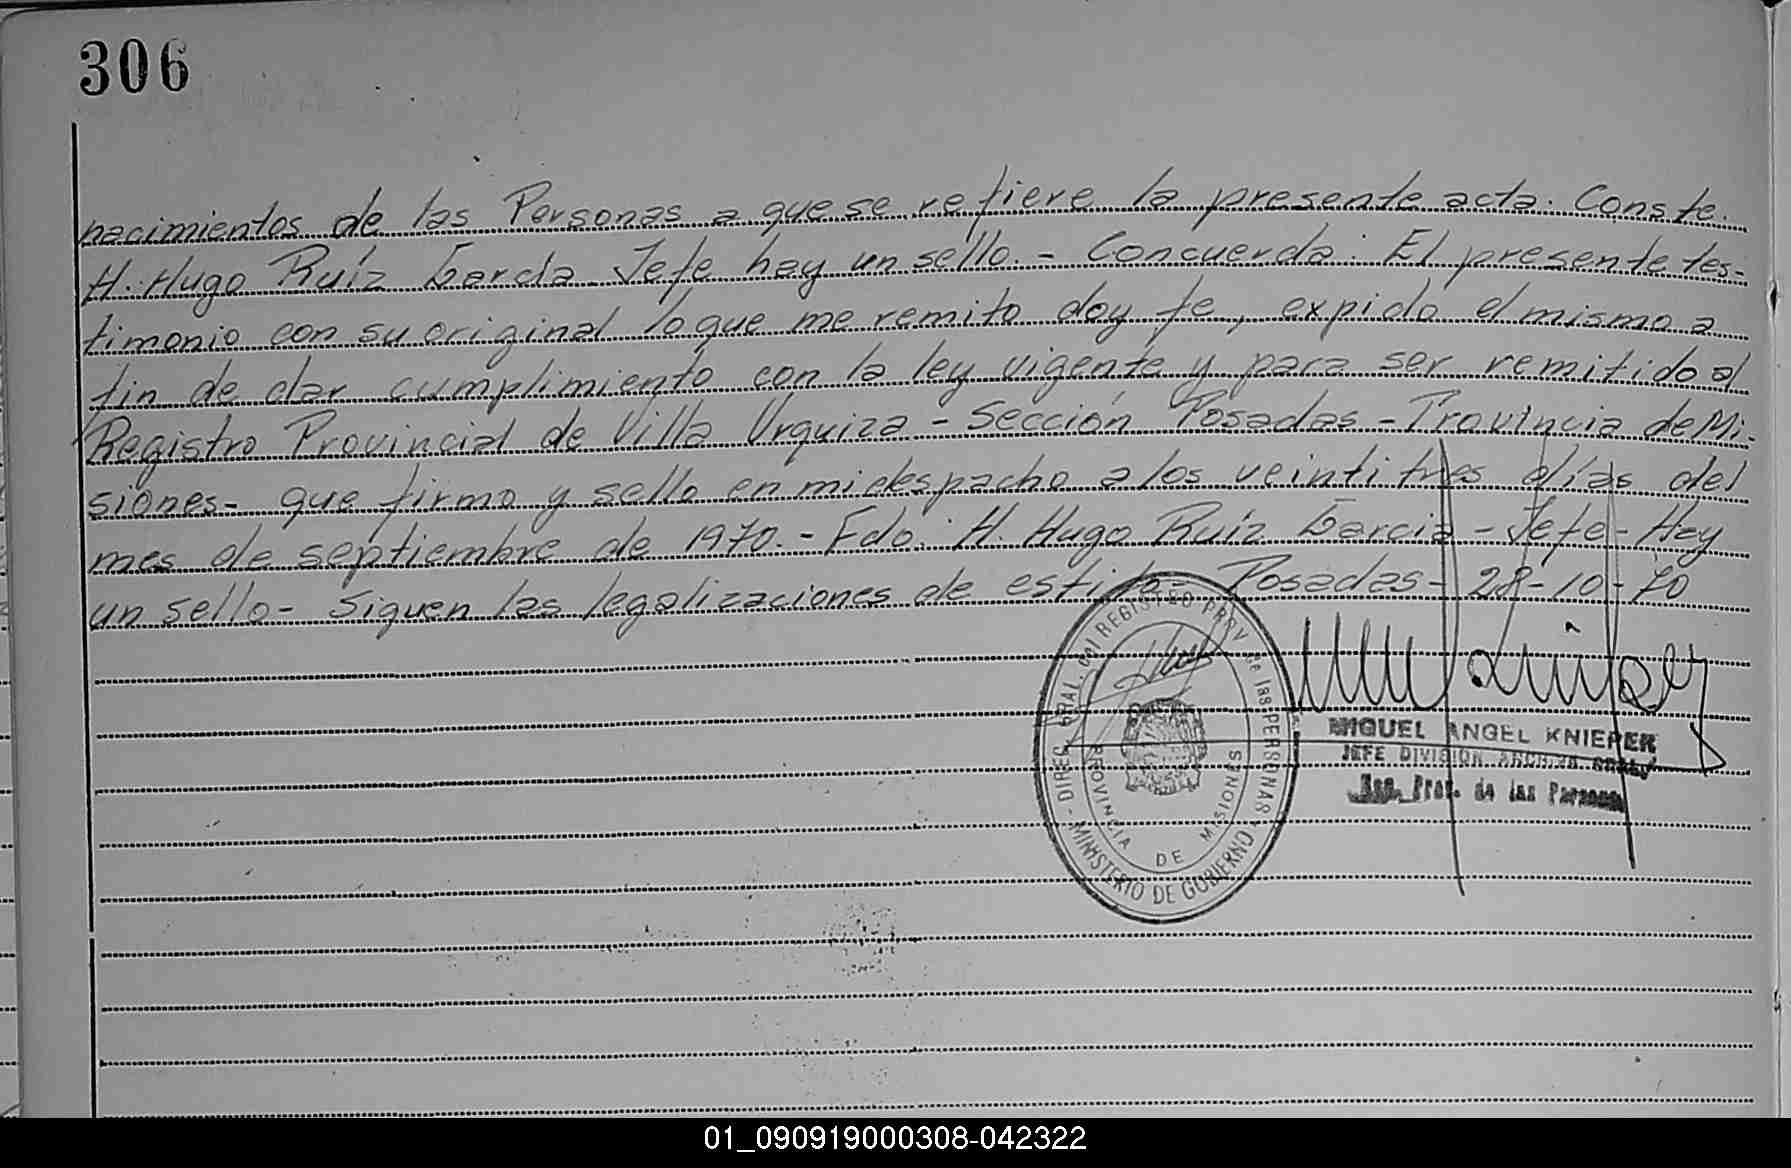 306
nacimientos de las Personas a que se refiere la presente acta. Conste.
H. Hugo Ruíz García Jefe hay un sello. - Concuerda: El presente tes-
timonio con su original lo que me remito doy fe, expido el mismo a
fin de dar cumplimiento con la ley vigente y para ser remitido al
Registro Provincial de Villa Urquiza - Sección Posadas - Provincia de Mi-
siones - que firmo y sello en mi despacho a los veintitres días del
mes de septiembre de 1970. - Fdo: H. Hugo Ruíz García - Jefe - Hay
un sello - Siguen las legalizaciones de estilo - Posadas - 28-10-70
DIREC. GRAL. del REGISTRO PROV. de las PERSONAS
MINISTERIO DE GOBIERNO
PROVINCIA DE MISIONES
MIGUEL ANGEL KNIEPER
JEFE DIVISION ARCHIVO GRAL
Prov. de las Personas
01_090919000308-042322